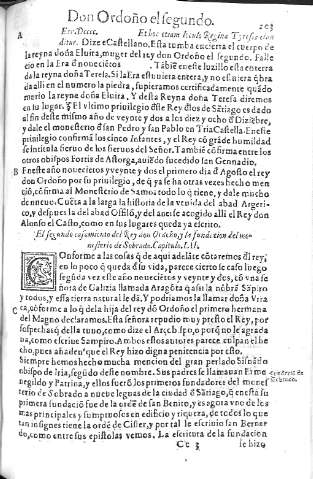 Don Ordoño el segundo. 203
A Era.Dcccc. Et hæc etiam huius Regina Tyresæ con
ditur. Dize Castellano. Esta tumba encierra el cuerpo de
la reyna doña Eluira, muger del rey don Ordoño el segundo. Falle
cio en la Era d̃ nouecietos Tãbiẽ en este luzillo esta enterra
da la reyna doña Teresa. Si la Era estuuiera entera, y no estuuiera q̃bra
da alli en el numero la piedra, supieramos certificadamente quãdo
murio la reyna doña Eluira. Y desta Reyna doña Teresa diremos
en su lugar. El vltimo priuilegio õste Rey ðlos de Sãtiago es dado
al fin deste mismo año de veynte y dos a los diez y ocho ð Diziẽbre,
y dale el monesterio ð san Pedro y san Pablo en Tria Castella. En este
priuilegio confirmã los cinco Infantes, y el Rey cõ grãde humildad
se intitula sieruo de los sieruos del Señor. Tambiẽ cõfirma entre los
otros obispos Fortis de Astorga, auiẽdo sucedido san Gennadio.
B En este año nouecientos y veynte y dos el primero dia ð Agosto el rey
don Ordoño por su priuilegio, de q̃ ya se ha otras vezes hecho men
ciõ, cõfirma al Monesterio de Samos todo lo q̃ tiene, y dale mucho
de nueuo. Cuẽta a la larga la historia de la venida del abad Argeri-
co, y despues la del abad Offilõ, y del auerse acogido alli el Rey don
Alonso el Casto, como en sus lugares queda ya escrito.
El segundo casamiento del Rey don Ordoño, y la fundacion del mo-
nesterio de Sobrado. Capitulo. LII.
COnforme a las cosas q̃ de aqui adelãte cõtaremos ðl rey,
en lo poco q̃ queda ð su vida, parece cierto se caso luego
segũda vez este año nouecietos y veynte y dos, cõ vna se
ñora de Galizia llamada Aragõta q̃ assi la nõbra Sãpiro
y todos, y essa tierra natural le dã. Y podriamos la llamar doña Vrra
C ca, cõforme a lo q̃ del a hija del rey dõ Ordoño el primero hermana
del Magno declaramos. Esta señora repudio muy presto el Rey, por
sospechas q̃ della tuuo, como dize el Arçobispo, porq̃ no le agrada
ua, como escriue Sampiro. Ambos estos autores parece culpan el he
cho, pues añaden q̃ el Rey hizo digna penitencia por esto.
Siempre hemos hecho mucha mencion del gran perlado Sisnãdo
obispo de Iria, segũdo deste nombre. Sus padres se llamauan Erme
negildo y Patrina, y ellos fuerõ los primeros fundadores del mones
terio de Sobrado a nueue leguas de la ciudad ð Sãtiago, q̃ en esta su
primera fundaciõ fue de la ordẽ de san Benito, y es agora vno de los
mas principales y sumptuosos en edificio y riqueza, de todos lo que
tan insignes tiene la ordẽ de Cister, y por tal le escriuio san Bernar
do, como entre sus epistolas vemos. La escritura de la fundacion
Cc 3 se hizo